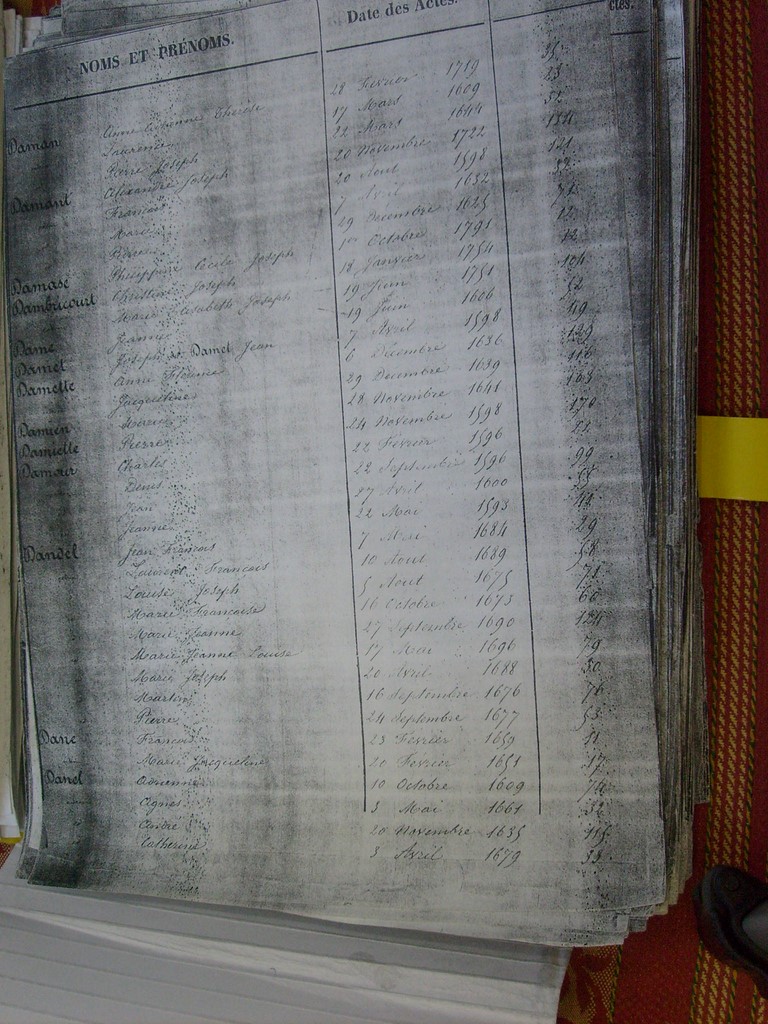 NOMS ET PRÉNOMS. Date des Actes. ctes.
Daman Anne Thérèse 28 Février 1719 35
Laurence 17 Mars 1609 23
Pierre Joseph 22 Mars 1644 32
Damant Alexandre Joseph 20 Novembre 1722 134
François 20 Aout 1598 121
Marie 7 Avril 1632
29 Decembre 1625 71
Damase Philippine Cecile Joseph 1er Octobre 1791 12
Dambricourt Christine Joseph 18 Janvier 1754 12
Marie Elisabeth Joseph 19 Juin 1751 104
Dame Jeanne 19 Juin 1606 52
Damet Joseph de Damet Jean 7 Avril 1598 119
Damette Anne 6 Décembre 1636 129
Jacqueline 29 Decembre 1639 116
Damien Marie 28 Novembre 1641 163
Damielle Pierre 24 Novembre 1598 170
Damour Charles 22 Février 1596
Denis 22 Septembre 1596 99
Jean 27 Avril 1600
Jeanne 22 Mai 1593
Dandel Jean Francois 7 Mai 1684 29
Laurent Francois 10 Aout 1689 58
Louise Joseph 5 Aout 1675 71
Marie Francoise 16 Octobre 1673 60
Marie Jeanne 27 Septembre 1690 124
Marie Jeanne Louise 17 Mai 1696 79
Marie Joseph 20 Avril 1688 30
Martin 16 Septembre 1676 76
Pierre 24 Septembre 1677 53
Dane Francois 23 Février 1659 81
Marie Jacqueline 20 Février 1651 17
Danel Adrienne 10 Octobre 1609 74
Agnes 3 Mai 1661 32
Andre 20 Novembre 1635 115
Catherine 3 Avril 1679 33